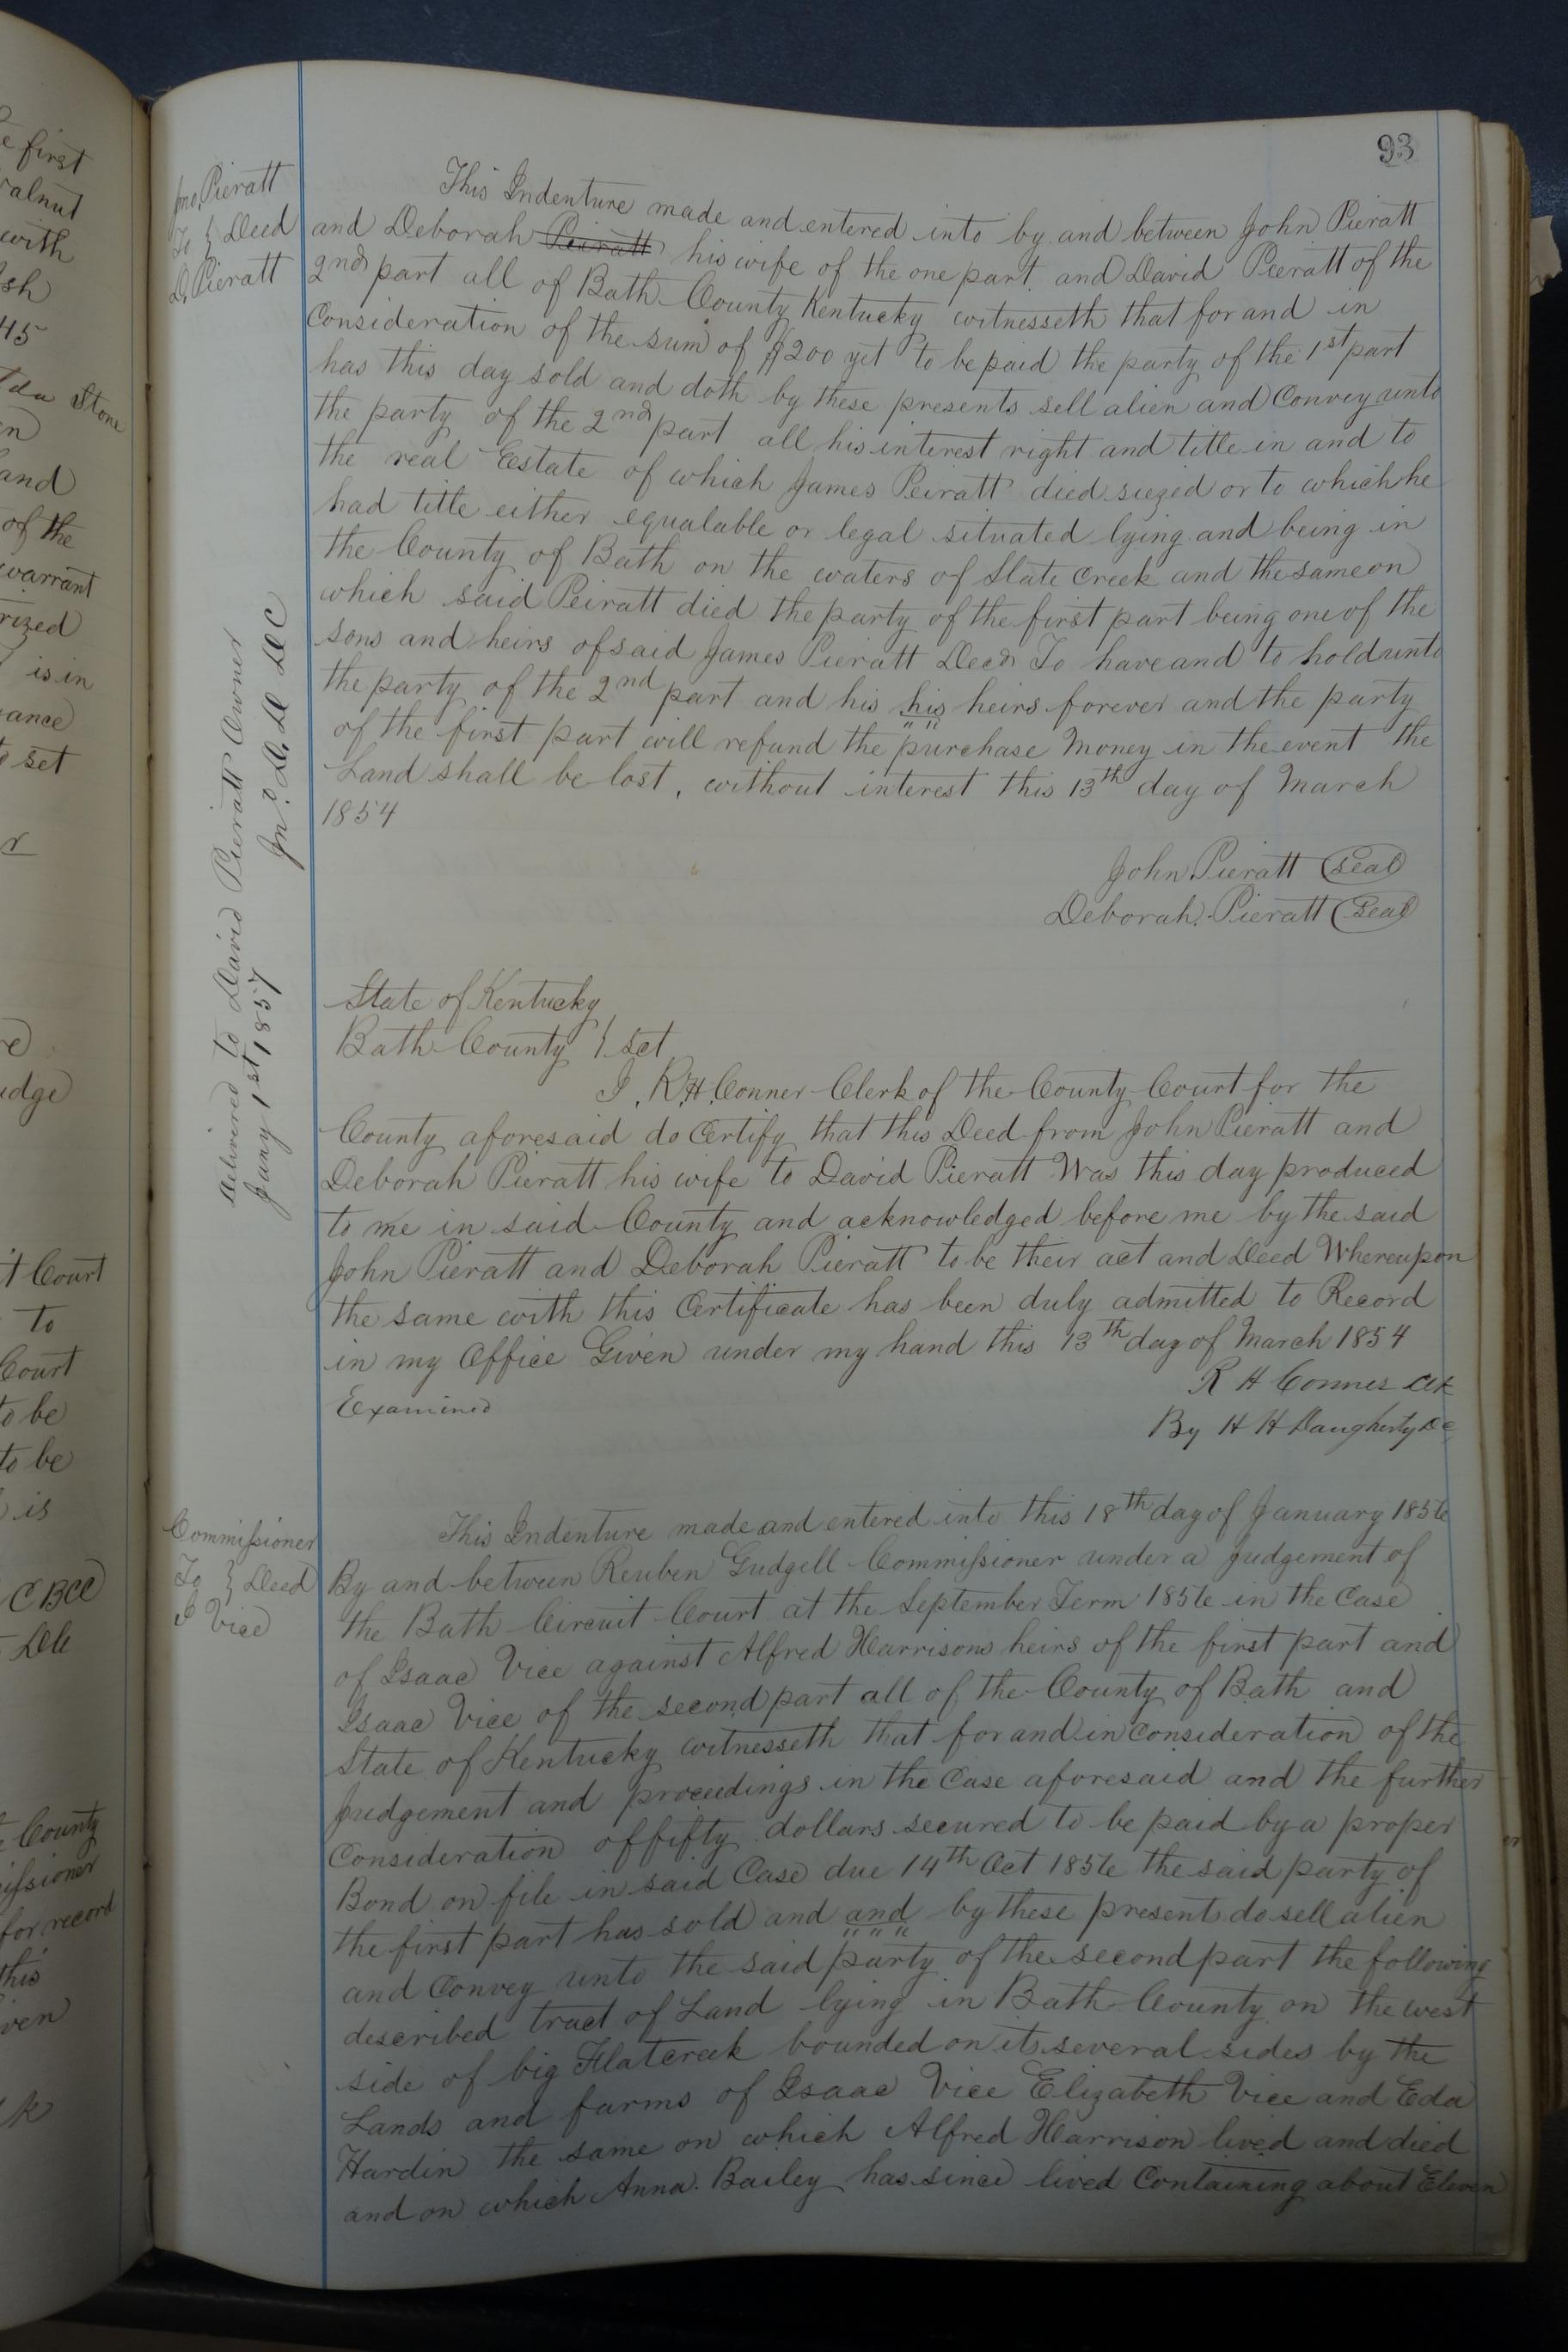 93
Jno. Pieratt
To } Deed
D. Pieratt
This Indenture made and entered into by and between John Pieratt
and Deborah Peiratt his wife of the one part, and David Pieratt of the
2nd part all of Bath County Kentucky witnesseth that for and in
Consideration of the sum of $200 yet to be paid the party of the 1st part
has this day sold and doth by these presents sell alien and Convey unto
the party of the 2nd part all his interest right and title in and to
the real Estate of which James Peiratt died siezed or to which he
had title either equalable or legal situated lying and being in
the County of Bath on the waters of Slate Creek and the same on
which said Peiratt died the party of the first part being one of the
sons and heirs of said James Pieratt Decd To have and to hold unto
the party of the 2nd part and his his heirs forever and the party
of the first part will refund the purchase Money in the event the
Land shall be lost, without interest this 13th day of March
1854
John Pieratt (Seal)
Deborah Pieratt (Seal)
Delivered to David Pieratt Owner
Jany 1st 1857 Jno. D. D D C
State of Kentucky
Bath County } Sct
I, R.H. Conner Clerk of the County Court for the
County aforesaid do Certify that this Deed from John Pieratt and
Deborah Pieratt his wife to David Pieratt Was this day produced
to me in said County and acknowledged before me by the said
John Pieratt and Deborah Pieratt to be their act and Deed Whereupon
the same with this Certificate has been duly admitted to Record
in my Office Given under my hand this 13th day of March 1854
R H Conner Clk
Examined
By H H Daugherty DC
Commissioner
To } Deed
I Vice
This Indenture made and entered into this 18th day of January 1856
By and between Reuben Gudgell Commissioner under a judgement of
the Bath Circuit Court at the September Term 1856 in the Case
of Isaac Vice against Alfred Harrisons heirs of the first part and
Isaac Vice of the second part all of the County of Bath and
State of Kentucky witnesseth that for and in consideration of the
Judgement and proceedings in the Case aforesaid and the further
Consideration of fifty dollars secured to be paid by a proper
Bond on file in said Case due 14th Oct 1856 the said party of
the first part has sold and and by these presents do sell alien
and Convey unto the said party of the second part the following
described tract of Land lying in Bath County on the west
side of big Flatcreek bounded on its several sides by the
Lands and farms of Isaac Vice Elizabeth Vice and Eda
Hardin the same on which Alfred Harrison lived and died
and on which Anna Bailey has since lived Containing about Eleven